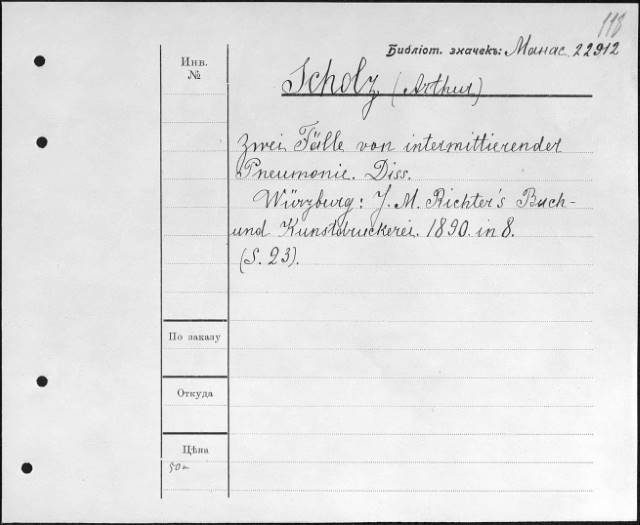 118
Библіот. значекъ: Манас. 22912
Инв.
№
Scholz (Arthur)
Zwei Fälle von intermittierender
Pneumonie. Diss.
Würzburg: J. M. Richter's Buch-
und Kunstdruckerei. 1890. in 8.
(S. 23).
По заказу
Откуда
Цѣна